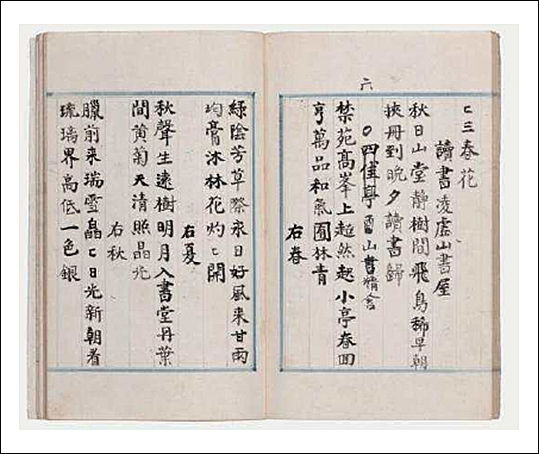 六
〻三春花
讀書凌虛山書屋
秋日山堂静樹間飛鳥稀早朝
挾冊到晩夕讀書歸
〇四佳亭 山書精舍
禁苑高峯上超然起小亭春回
亨萬品和氣囿林青
右春
綠陰芳草際永日好風来甘雨
均膏沐林花灼〻開
右夏
秋聲生遠樹明月入書堂丹葉
間黄菊天清照晶光
右秋
臘前来瑞雪晶〻日光新朝看
琉璃界高低一色銀